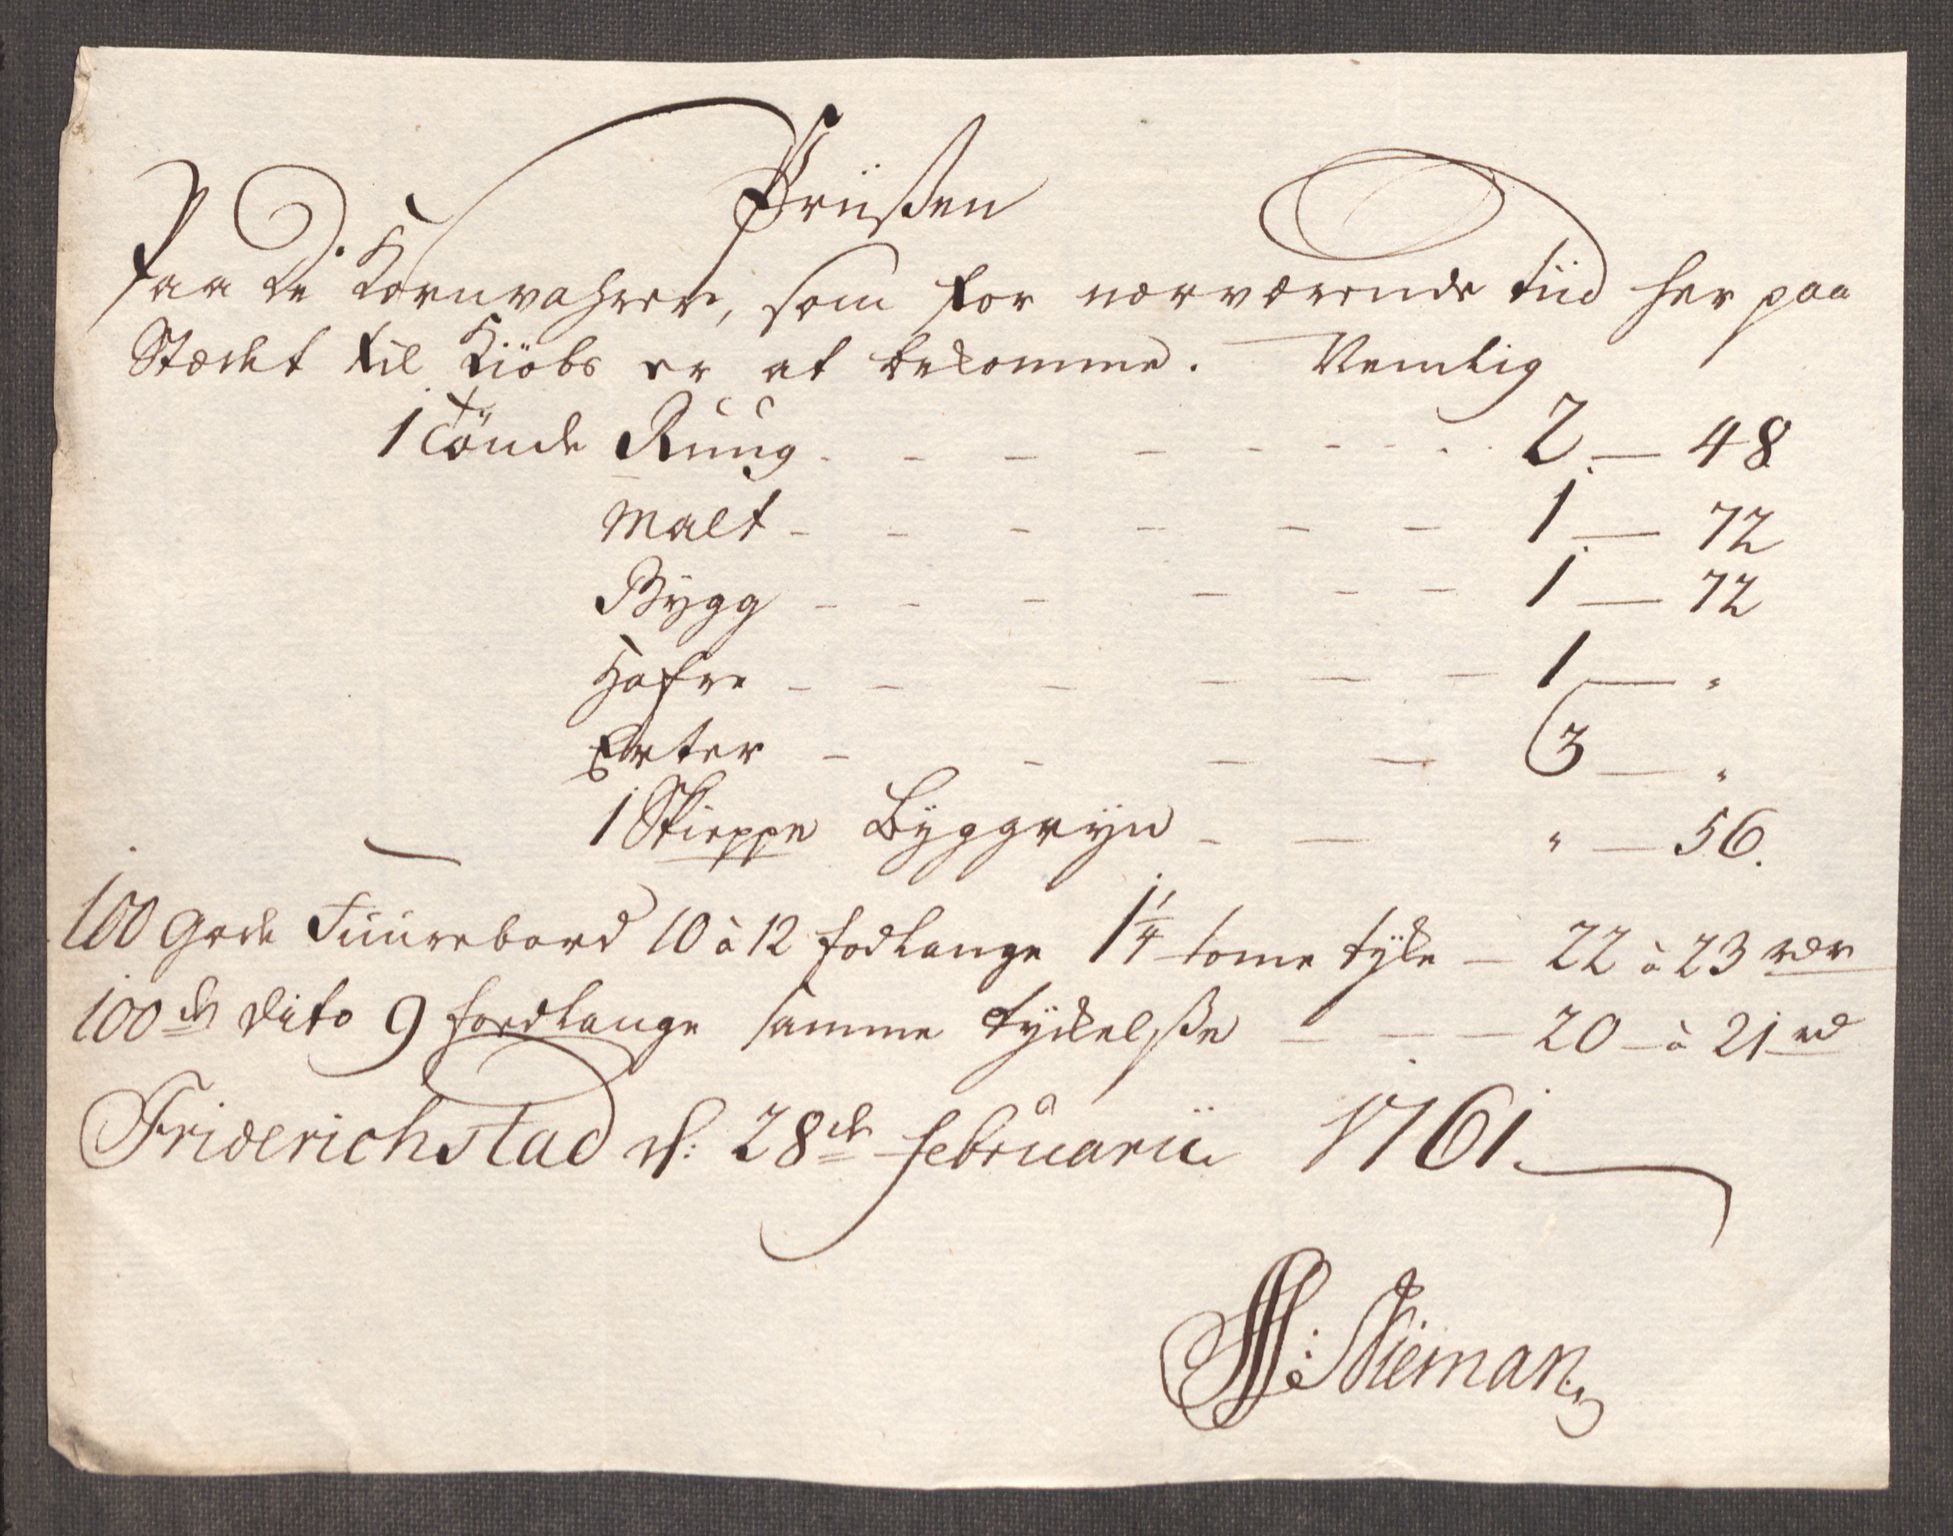 Prisßen
Paa de Kornvahrer, som for nærværende tiid her paa
Stædet til Kiöbs er at bekomme. Nemlig
1 Tönde Rúúg - - - - - - - 2 — 48
Malt - - - - - - 1 — 72
Bÿgg - - - - - - 1 — 72
Hafre - - - - - - 1 — "
Erter - - - - 3 — "
1 Skieppe Bÿggrÿn - - " — 56.
100 gode Fuúrebord 10 à 12 fodlange 1 1/4 tome tÿke — 22 à 23 rdr
100de dito 9 foedlange samme tÿckelsße - - - 20 - à 21 rd
Friderichstad d: 28de februarii 1761.
Nieman